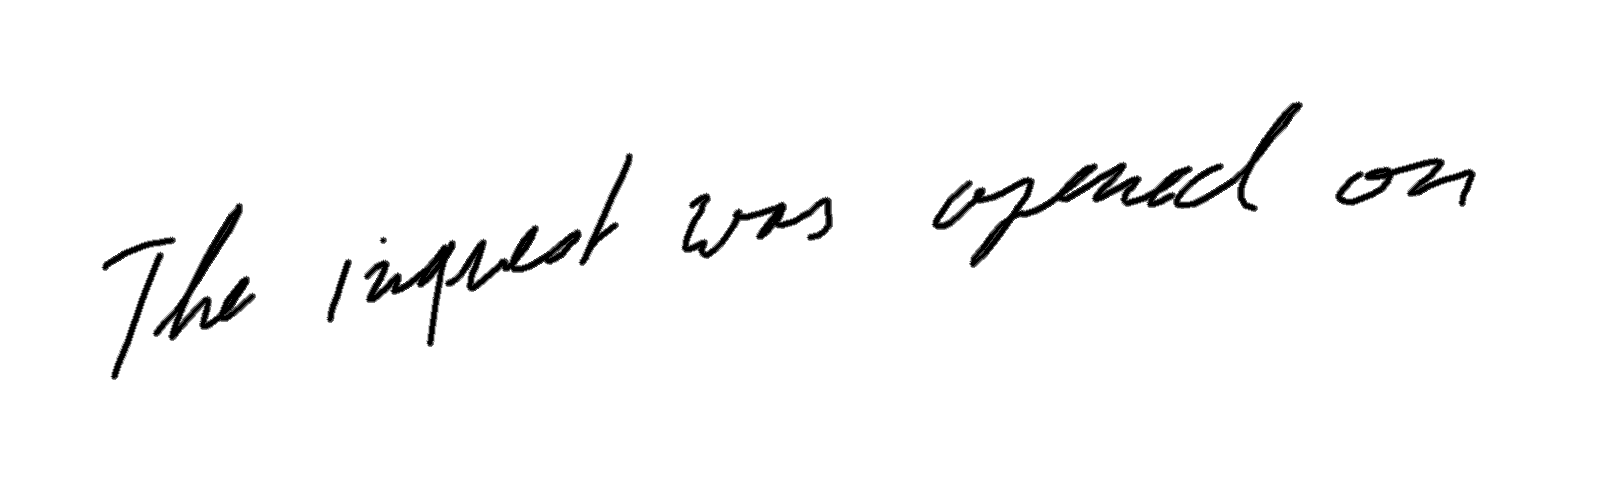 The inquest was opened on